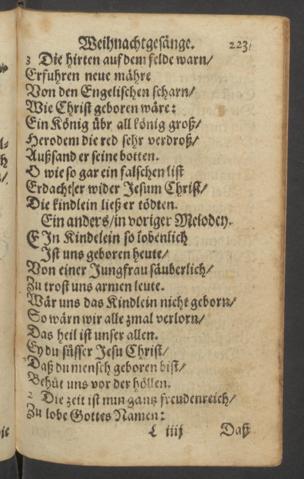 Weihnachtgesänge. 223
3 Die hirten auf dem felde warn/
Erfuhren neue mähre
Von den Engelischen scharn/
Wie Christ geboren wäre:
Ein König übr all könig groß/
Herodem die red sehr verdroß/
Außsand er seine botten.
O wie so gar ein falschen list
Erdacht er wider Jesum Christ/
Die kindlein ließ er tödten.
Ein anders/in voriger Melodey.
EIn Kindelein so lobenlich
Ist uns geboren heute/
Von einer Jungfrau säuberlich/
Zu trost uns armen leute.
Wär uns das Kindlein nicht geborn/
So wärn wir alle zmal verlorn/
Das heil ist unser allen.
Ey du süsser Jesu Christ/
Daß du mensch geboren bist/
Behüt uns vor der höllen.
2 Die zeit ist nun gantz freudenreich/
Zu lobe Gottes Namen:
L iiij Daß